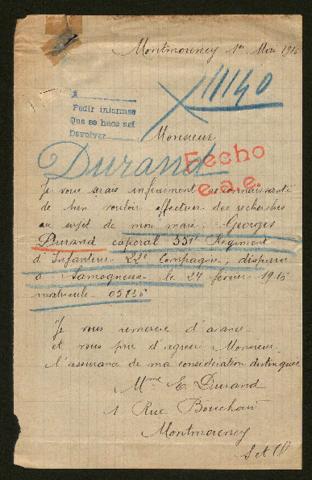 Montmorency 1er Mai 1916
11140
A
Pedir informes
Que se hace así
Devolver
Monsieur
Durand
Fecho
e.a.e.
Je vous serais infiniment reconnaissante
de bien vouloir effectuer des recherches
au sujet de mon mari: Georges
Durand caporal 351e Régiment
d'Infanterie 22e Compagnie, disparu
à Samogneux le 24 février 1916
matricule 05135
Je vous remercie d'avance
et vous prie d'agréer Monsieur
l'assurance de ma considération distinguée
Mme E. Durand
1 Rue Bouchard
Montmorency
S et O